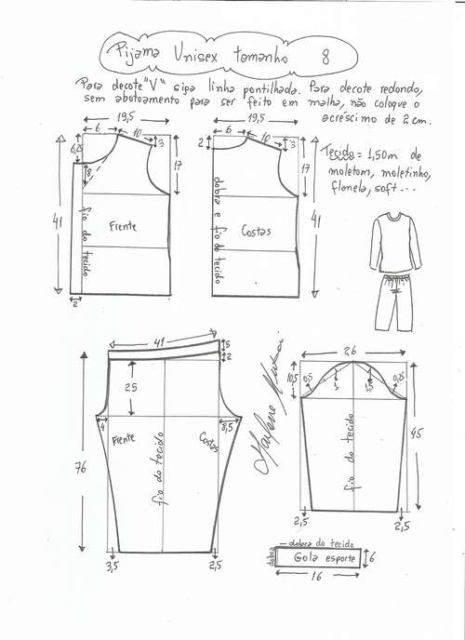 Pijama Unisex tamanho 8
Para decote "V" siga linha pontilhada. Para decote redondo,
sem abotoamento para ser feito em malha, não coloque o
acréscimo de 2 cm.
Tecido = 1,50m de
moletom, moletinho,
flanela, soft...
19,5
6
10
3
6,5
8
17
41
Frente
fio do tecido
2
19,5
6
10
3
2
17
41
Costas
dobra e fio do tecido
41
5
2
25
4
8,5
76
Frente
Costas
fio do tecido
3,5
2,5
Marlene Mukai
26
10,5
0,5
45
fio do tecido
2,5
2,5
dobra do tecido
dobra
Gola esporte
6
16